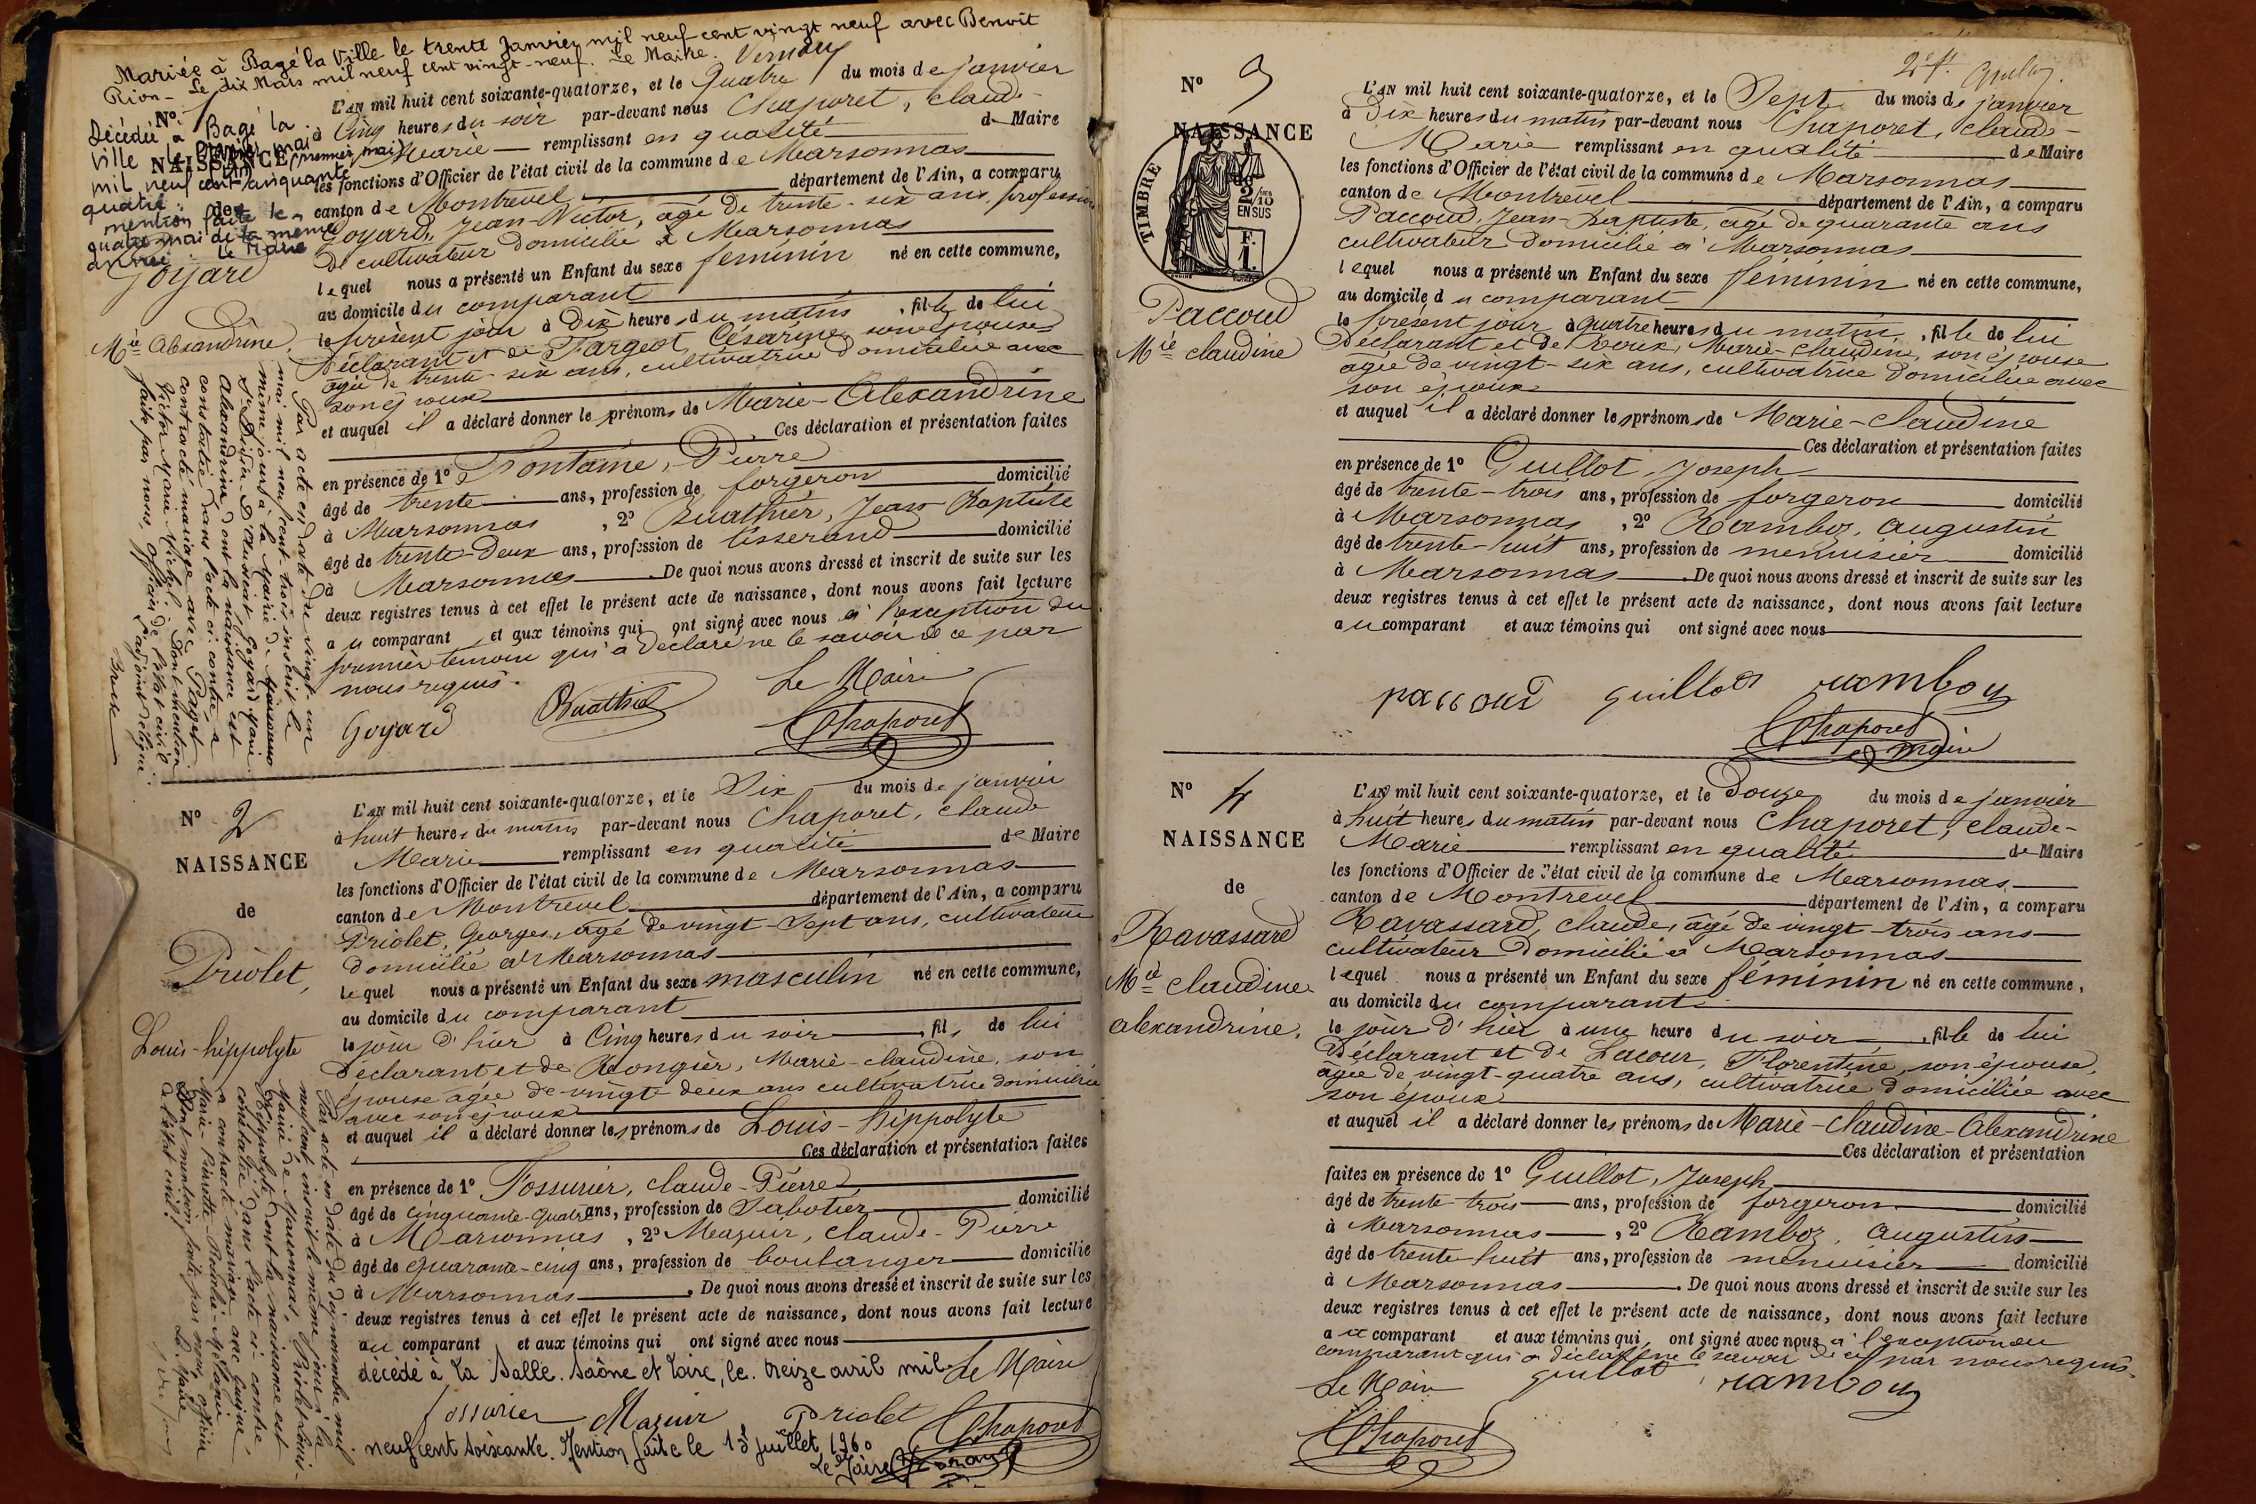 Mariée à Bagé la Ville le trente Janvier mil neuf cent vingt neuf avec Benoit
Rion - Le dix Mars mil neuf cent vingt-neuf. Le Maire.
Nº 1
NAISSANCE
de
Goyard
Mie Alexandrine.
Décédée à Bagé la
ville le premier mai
(premier mai)
mil neuf cent cinquante
quatre.
mention faite le
quatre mai de la même
année. Le Maire
L'AN mil huit cent soixante-quatorze, et le Quatre du mois de janvier
à Cinq heures du soir par-devant nous Chaporet, Claude-
Marie remplissant en qualité de Maire
les fonctions d'Officier de l'état civil de la commune de Marsonnas
canton de Montrevel département de l'Ain, a comparu
Goyard, Jean-Victor, âgé de trente-six ans, profession
de cultivateur domicilié à Marsonnas
lequel nous a présenté un Enfant du sexe féminin né en cette commune,
au domicile du comparant
le présent jour à Dix heures du matin, fille de lui
Déclarant et de Fargeot Césarine, son épouse
âgée de trente-six ans, cultivatrice domiciliée avec
son époux
et auquel il a déclaré donner les prénoms de Marie-Alexandrine
Ces déclaration et présentation faites
en présence de 1º Fontaine, Pierre
âgé de trente ans, profession de forgeron domicilié
à Marsonnas, 2º Buathier, Jean Baptiste
âgé de trente-deux ans, profession de tisserand domicilié
à Marsonnas. De quoi nous avons dressé et inscrit de suite sur les
deux registres tenus à cet effet le présent acte de naissance, dont nous avons fait lecture
au comparant et aux témoins qui ont signé avec nous à l'exception du
premier témoin qui a déclaré ne le savoir de ce par
nous requis.
Le Maire
Goyard Buathier Chaporet
Par acte en date du vingt-un
mai mil neuf cent-trois inscrit le
même jour à la Mairie de
Goyard Marie
Alexandrine dont la naissance est
constatée dans l'acte ci-contre, a
contracté mariage avec Paget
Victor Marie Michel. Dont mention
faite par nous, officier de l'état civil
L'adjoint délégué
Nº 2
NAISSANCE
de
Priolet,
Louis-hippolyte
L'AN mil huit cent soixante-quatorze, et le Dix du mois de janvier
à huit heures du matin par-devant nous Chaporet, Claude
Marie remplissant en qualité de Maire
les fonctions d'Officier de l'état civil de la commune de Marsonnas
canton de Montrevel département de l'Ain, a comparu
Priolet, Georges, âgé de vingt-sept ans, cultivateur
domicilié à Marsonnas
lequel nous a présenté un Enfant du sexe masculin né en cette commune,
au domicile du comparant
le jour d'hier à Cinq heures du soir, fils de lui
Déclarant et de Rongier, Marie-claudine, son
épouse âgée de vingt deux ans cultivatrice domiciliée
avec son époux
et auquel il a déclaré donner les prénoms de Louis-hippolyte
Ces déclaration et présentation faites
en présence de 1º Fossurier, claude-Pierre
âgé de cinquante-quatre ans, profession de Sabotier domicilié
à Marsonnas, 2º Mazuir, Claude-Pierre
âgé de quarante-cinq ans, profession de boulanger domicilié
à Marsonnas. De quoi nous avons dressé et inscrit de suite sur les
deux registres tenus à cet effet le présent acte de naissance, dont nous avons fait lecture
au comparant et aux témoins qui ont signé avec nous
décédé à La Salle. Saône et Loire, le treize avril mil Le Maire
fossurier Mazuir Priolet Chaporet
neuf cent soixante. Mention faite le 13 juillet 1960
Le Maire
Par acte en date du dix novembre mil
Mairie de Marsonnas, Priolet Louis-
Hippolyte dont la naissance est
constatée dans l'acte ci contre,
a contracté mariage avec
Marie-Pierrette-Rosalie-Mélanie
Dont mention faite par nous officier
de l'état civil.
Le Maire
2e ft.
Nº 3
NAISSANCE
TIMBRE
2/10
EN SUS
F.
1.
Paccoud
Mie claudine
L'AN mil huit cent soixante-quatorze, et le Sept du mois de janvier
à Dix heures du matin par-devant nous Chaporet, Claude-
Marie remplissant en qualité de Maire
les fonctions d'Officier de l'état civil de la commune de Marsonnas
canton de Montrevel département de l'Ain, a comparu
Paccoud, Jean-Baptiste, âgé de quarante ans
cultivateur domicilié à Marsonnas
lequel nous a présenté un Enfant du sexe féminin né en cette commune,
au domicile du comparant
le présent jour à quatre heures du matin, fille de lui
Déclarant et de Roux, Marie-Claudine, son épouse
âgée de vingt-six ans, cultivatrice domiciliée avec
son époux
et auquel il a déclaré donner les prénoms de Marie-Claudine
Ces déclaration et présentation faites
en présence de 1º Guillot, Joseph
âgé de trente-trois ans, profession de forgeron domicilié
à Marsonnas, 2º Ramboz, Augustin
âgé de trente-huit ans, profession de menuisier domicilié
à Marsonnas. De quoi nous avons dressé et inscrit de suite sur les
deux registres tenus à cet effet le présent acte de naissance, dont nous avons fait lecture
au comparant et aux témoins qui ont signé avec nous
paccoud guillot ramboz
Chaporet
maire
Nº 4
NAISSANCE
de
Ravassard
Mie claudine
alexandrine.
L'AN mil huit cent soixante-quatorze, et le Douze du mois de janvier
à huit heures du matin par-devant nous Chaporet, Claude-
Marie remplissant en qualité de Maire
les fonctions d'Officier de l'état civil de la commune de Marsonnas
canton de Montrevel département de l'Ain, a comparu
Ravassard, Claude, âgé de vingt-trois ans
cultivateur domicilié à Marsonnas
lequel nous a présenté un Enfant du sexe féminin né en cette commune,
au domicile du comparant
le jour d'hier à une heure du soir, fille de lui
Déclarant et de Lacour, Florentine, son épouse,
âgée de vingt-quatre ans, cultivatrice domiciliée avec
son époux
et auquel il a déclaré donner les prénoms de Marie-Claudine-Alexandrine
Ces déclaration et présentation
faites en présence de 1º Guillot, Joseph
âgé de trente-trois ans, profession de forgeron domicilié
à Marsonnas, 2º Ramboz, Augustin
âgé de trente-huit ans, profession de menuisier domicilié
à Marsonnas. De quoi nous avons dressé et inscrit de suite sur les
deux registres tenus à cet effet le présent acte de naissance, dont nous avons fait lecture
au comparant et aux témoins qui ont signé avec nous à l'exception du
comparant qui a déclaré ne le savoir de ce par nous requis.
Le Maire guillot ramboz
Chaporet